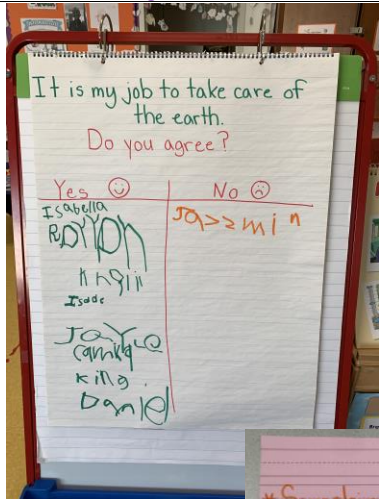 It is my job to take care of
the earth.
Do you agree?
Yes No
Isabella
Ja>>min
Isaac
Jayce
Camila
King
Daniel